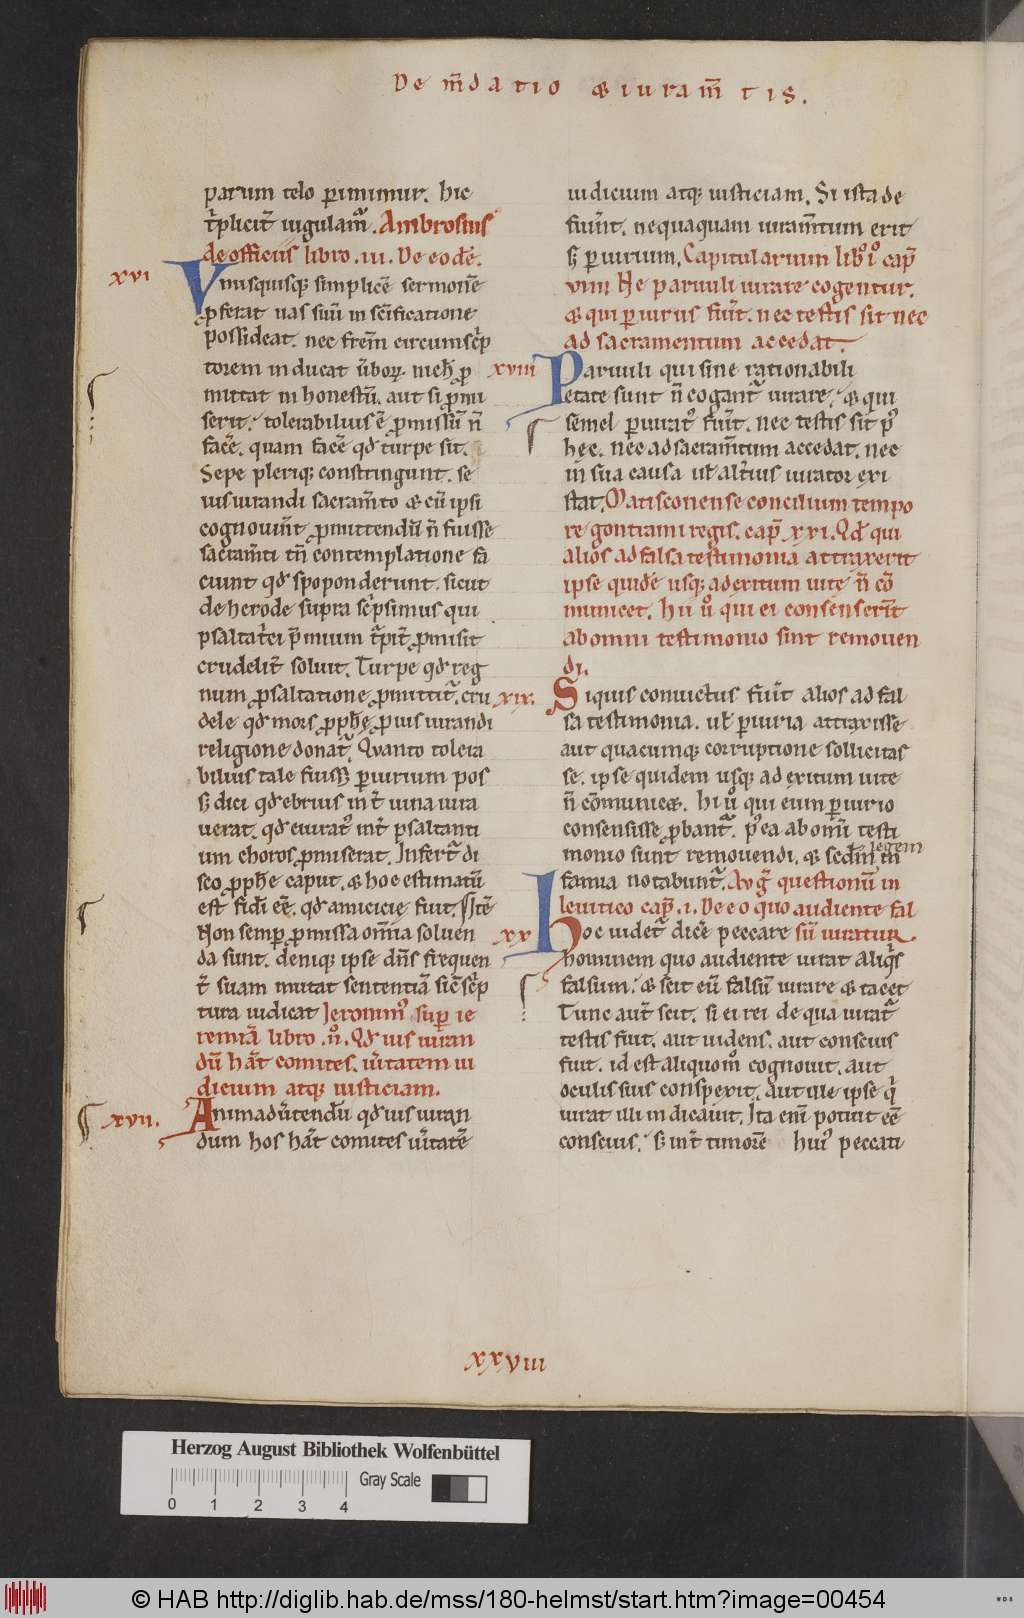 De m̄datio & iuram̄ tis.
parum telo ꝑimimur. hic
t̾plicit̾ iugulam᷑. Ambrosius
de officiis libro .iii. De eodē.
xvi
Vnusquisq; simplicē sermonē
ꝓferat uas suū in sc̄ificatione
possideat. nec fr̄em circumsc̾p
torem inducat ūboꝝ. nich̄ ꝓ
mittat inhonestū. aut si ꝓmi
serit. tolerabilius ē ꝓmissū n̄
facē. quam facē qd̄ turpe sit.
Sepe pleriq; constringunt. se
iusiurandi sacram̄to & cū ipsi
cognouīnt ꝓmittendū n̄ fuisse
sacram̄ti tn̄ contemplatione fa
ciunt qd̄ spoponderunt. sicut
de herode supra sc̾psimus qui
psaltat̾ci p̄mium t᷑pit̾ ꝓmisit
crudelit̾ soluit. Turpe qd̄ reg
num ꝓ saltatione ꝓmittit᷑. cru
dele qd̄ mors ꝓph̄ę ꝓ iusiurandi
religione donat᷑. Quanto tolera
bilius tale fuiss& ꝑiurium pos
s& dici qd̄ ebrius int̾ uina iura
uerat. qd̄ eiurat᾽ int̾ psaltanti
um choros ꝓmiserat. Infert᷑ di
sco ꝓph̄e caput. & hoc estimatū
est fidei eē. qd̄ amicicię fuit. Itē
Non semꝑ ꝓmissa om̄ia soluen
da sunt. deniq; ipse dn̄s frequen
t̾ suam mutat sententiā sic̄ sc̾p
tura iudicat Ieronim᾽ suꝑ ie
remiā libro .ii. Qd̄ ius iuran
dū hāt comites. ūitatem iu
dicium atq; iusticiam.
xvii.
Animadūtendū qd̄ ius iuran
dum hos hāt comites ūitatē
iudicium atq; iusticiam. Si ista de
fuīnt. nequaquam iuram̄tum erit
s& ꝑiurium. Capitularium lib᾽ i᾽ cap̄
viiii Ne paruuli iurare cogentur.
& qui ꝑiurus fuīt. nec testis sit nec
ad sacramentum accedat.
xviii
Paruuli qui sine rationabili
etate sunt n̄ cogant᷑ iurare. & qui
semel ꝑiurat᾽ fuīt. nec testis sit p᾽
hec. nec ad sacram̄tum accedat. nec
in sua causa ut̄ alt̾ius iurator exi
stat. Matisconense concilium tempo
re gontrami regis. cap̄ xxi. Qd̄ qui
alios ad falsa testimonia attraxerit
ipse quidē usq; ad exitum uite n̄ cō
municet. hii u᾽ qui ei consenserīt
ab omni testimonio sint remouen
di.
xix.
Siquis conuictus fuīt alios ad fal
sa testimonia. ut̄ ꝑiuria attraxisse
aut quacumq; corruptione sollicitas
se. ipse quidem usq; ad exitum uite
n̄ cōmunic&. hi u᾽ qui eum ꝑiurio
consensisse ꝓbant᷑. p᾽ea ab omī testi
monio sunt remouendi. & scdm̄ legem in
famia notabunt᷑. Aug̾ questionū in
leuitico cap̄ .i. De eo quo audiente fal
xx
Hoc uidet᷑ dicē peccare sū iuratur.
hominem quo audiente iurat aliq̾s
falsum. & scit eū falsū iurare & tacet
Tunc aut̄ scit. si ei rei de qua iurat᷑
testis fuit. aut uidens. aut conscius
fuit. id est aliquom᾽ cognouit. aut
oculis suis conspexit. aut ille ipse q̾
iurat illi indicauit. Ita enī potuit eē
conscius. s& int̾ timorē hui᾽ peccati
xxviii
Herzog August Bibliothek Wolfenbüttel
0 1 2 3 4 Gray Scale
© HAB http://diglib.hab.de/mss/180-helmst/start.htm?image=00454